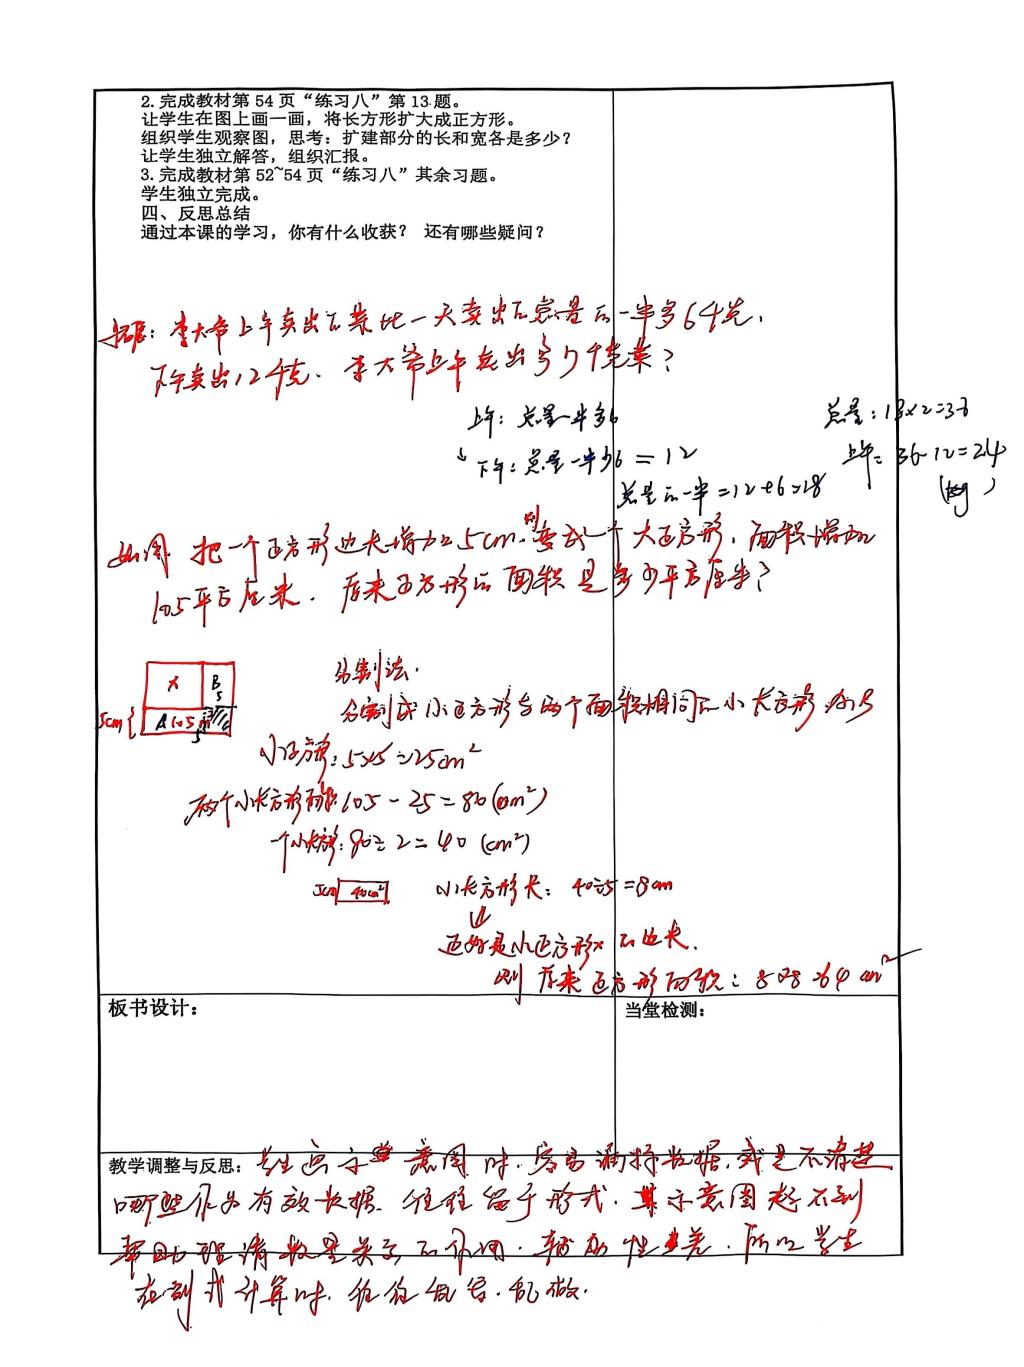 2.完成教材第54页“练习八”第13.题。
让学生在图上画一画，将长方形扩大成正方形。
组织学生观察图，思考：扩建部分的长和宽各是多少？
让学生独立解答，组织汇报。
3.完成教材第52~54页“练习八”其余习题。
学生独立完成。
四、反思总结
通过本课的学习，你有什么收获？ 还有哪些疑问？
拓展：李大爷上午卖出的菜比一天卖出的总量的一半多6千克，
下午卖出12千克. 李大爷上午卖出多少千克菜？
上午：总量一半多6
下午：总量一半少6 = 12
总量的一半=12+6=18
总量：18×2=36
上午：36-12=24
(kg)
如图 把一个正方形边长增加5cm.则变成一个大正方形，面积增加
105平方厘米. 原来正方形的面积是多少平方厘米？
B
5
5cm
A 105
5
分割法.
分割成小正方形与两个面积相同的小长方形
小正方形：5×5=25cm²
两个小长方形面积：105-25=80(cm²)
一个小长方形：80÷2=40 (cm²)
5cm 40cm²
小长方形长：40÷5=8cm
正好是小正方形的边长.
则 原来正方形面积：8×8=64 cm²
板书设计：
当堂检测：
教学调整与反思：学生画示意图时，容易漏标数据，或是不清楚
哪些作为有效数据. 往往留于形式，其示意图起不到
帮助理清数量关系的作用. 辅助性差. 所以学生
在列式计算时，往往乱写.乱做.